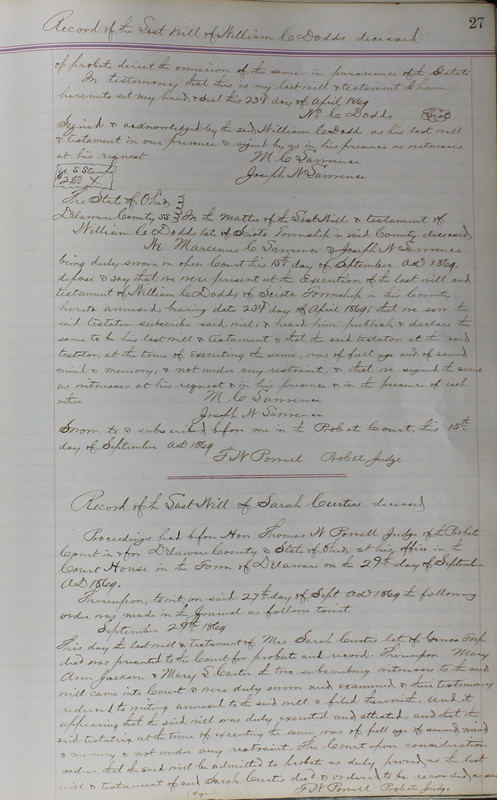 27
Record of the Last Will of William C Dodds deceased
of probate, direct the omission of the same in pursuance of the Statute
In testimony that this is my last will & testament I have
hereunto set my hand & seal this 23d day of April 1869
Wm C Dodds Seal
Signed & acknowledged by the said William C Dodds as his last will
& testament in our presence & signed by us in his presence as witnesses
at his request M. C. Lawrence
U. S. Stamp Joseph N Lawrence
The State of Ohio
Delaware County SS In the matter of the Last Will & testament of
William C Dodds late of Scioto Township in said County deceased
We Marcenus C Lawrence & Joseph N Lawrence
being duly sworn in open Court this 15th day of September AD 1869.
depose & say that we were present at the Execution of the last will and
testament of William C Dodds of Scioto Township in this County
hereto annexed, bearing date 23d day of April 1869; that we saw the
said testator subscribe said will, & heard him publish & declare the
same to be his last will & testament & that the said testator at the said
testator at the time of executing the same, was of full age and of sound
mind & memory, & not under any restraint, & that we signed the same
as witnesses at his request & in his presence & in the presence of each
other M. C Lawrence
Joseph N Lawrence
Sworn to & subscribed before me in the Probate Court, this 15th
day of September AD 1869
T W Powell Probate Judge
Record of the Last Will of Sarah Curtis deceased
Proceedings had before Hon Thomas W Powell Judge of the Probate
Court in & for Delaware County & State of Ohio, at his office in the
Court House in the Town of Delaware on the 29th day of September
AD 1869.
Thereupon, to wit on said 29th day of Sept AD 1869 the following
order was made in the Journal as follows to wit
September 29th 1869
This day the last will & testament of Mrs Sarah Curtis late of Genoa Twp
decd was presented to the Court for probate and record. Thereupon Mary
Ann Jackson & Mary E Curtis the two subscribing witnesses to the said
will came into Court & were duly sworn and examined & their testimony
reduced to writing annexed to the said will & filed therewith. And it
appearing that the said will was duly executed and attested and that the
said testatrix at the time of executing the same, was of full age of sound mind
& memory & not under any restraint. The Court upon consideration
order that the said will be admitted to probate as duly proved as the last
will & testament of said Sarah Curtis decd & ordered to be recorded
T W Powell Probate Judge